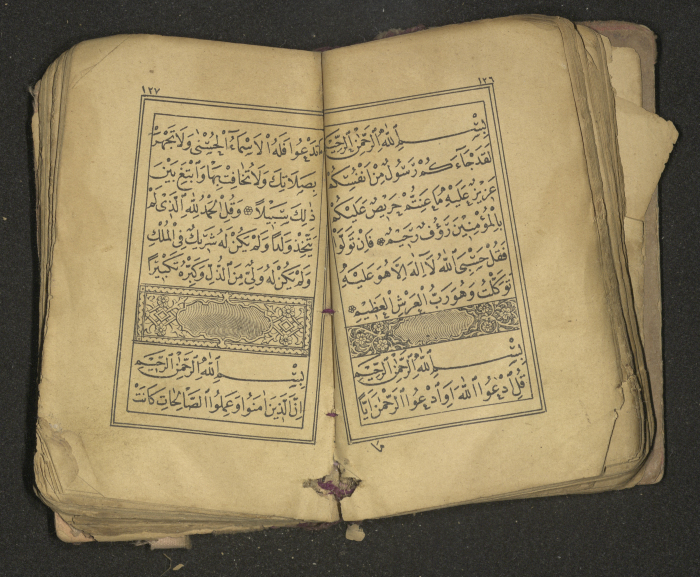 ١٢٦
بِسْمِ اللهِ الرَّحْمٰنِ الرَّحِيمِ
لَقَدْ جَاءَكُمْ رَسُولٌ مِنْ اَنْفُسِكُمْ
عَزِيزٌ عَلَيْهِ مَا عَنِتُّمْ حَرِيصٌ عَلَيْكُمْ
بِالْمُؤْمِنِينَ رَؤُفٌ رَحِيمٌ ❋ فَاِنْ تَوَلَّوْا
فَقُلْ حَسْبِيَ اللهُ لَا اِلٰهَ اِلَّا هُوَ عَلَيْهِ
تَوَكَّلْتُ وَهُوَ رَبُّ الْعَرْشِ الْعَظِيمِ ❋
بِسْمِ اللهِ الرَّحْمٰنِ الرَّحِيمِ
قُلِ ادْعُوا اللهَ اَوِ ادْعُوا الرَّحْمٰنَ اَيًّا
ما
١٢٧
مَا تَدْعُوا فَلَهُ الْاَسْمَاءُ الْحُسْنٰى وَلَا تَجْهَرْ
بِصَلَاتِكَ وَلَا تُخَافِتْ بِهَا وَابْتَغِ بَيْنَ
ذٰلِكَ سَبِيلًا ❋ وَقُلِ الْحَمْدُ لِلّٰهِ الَّذِي لَمْ
يَتَّخِذْ وَلَدًا وَلَمْ يَكُنْ لَهُ شَرِيكٌ فِي الْمُلْكِ
وَلَمْ يَكُنْ لَهُ وَلِيٌّ مِنَ الذُّلِّ وَكَبِّرْهُ تَكْبِيرًا
بِسْمِ اللهِ الرَّحْمٰنِ الرَّحِيمِ
اِنَّ الَّذِينَ اٰمَنُوا وَعَمِلُوا الصَّالِحَاتِ كَانَتْ